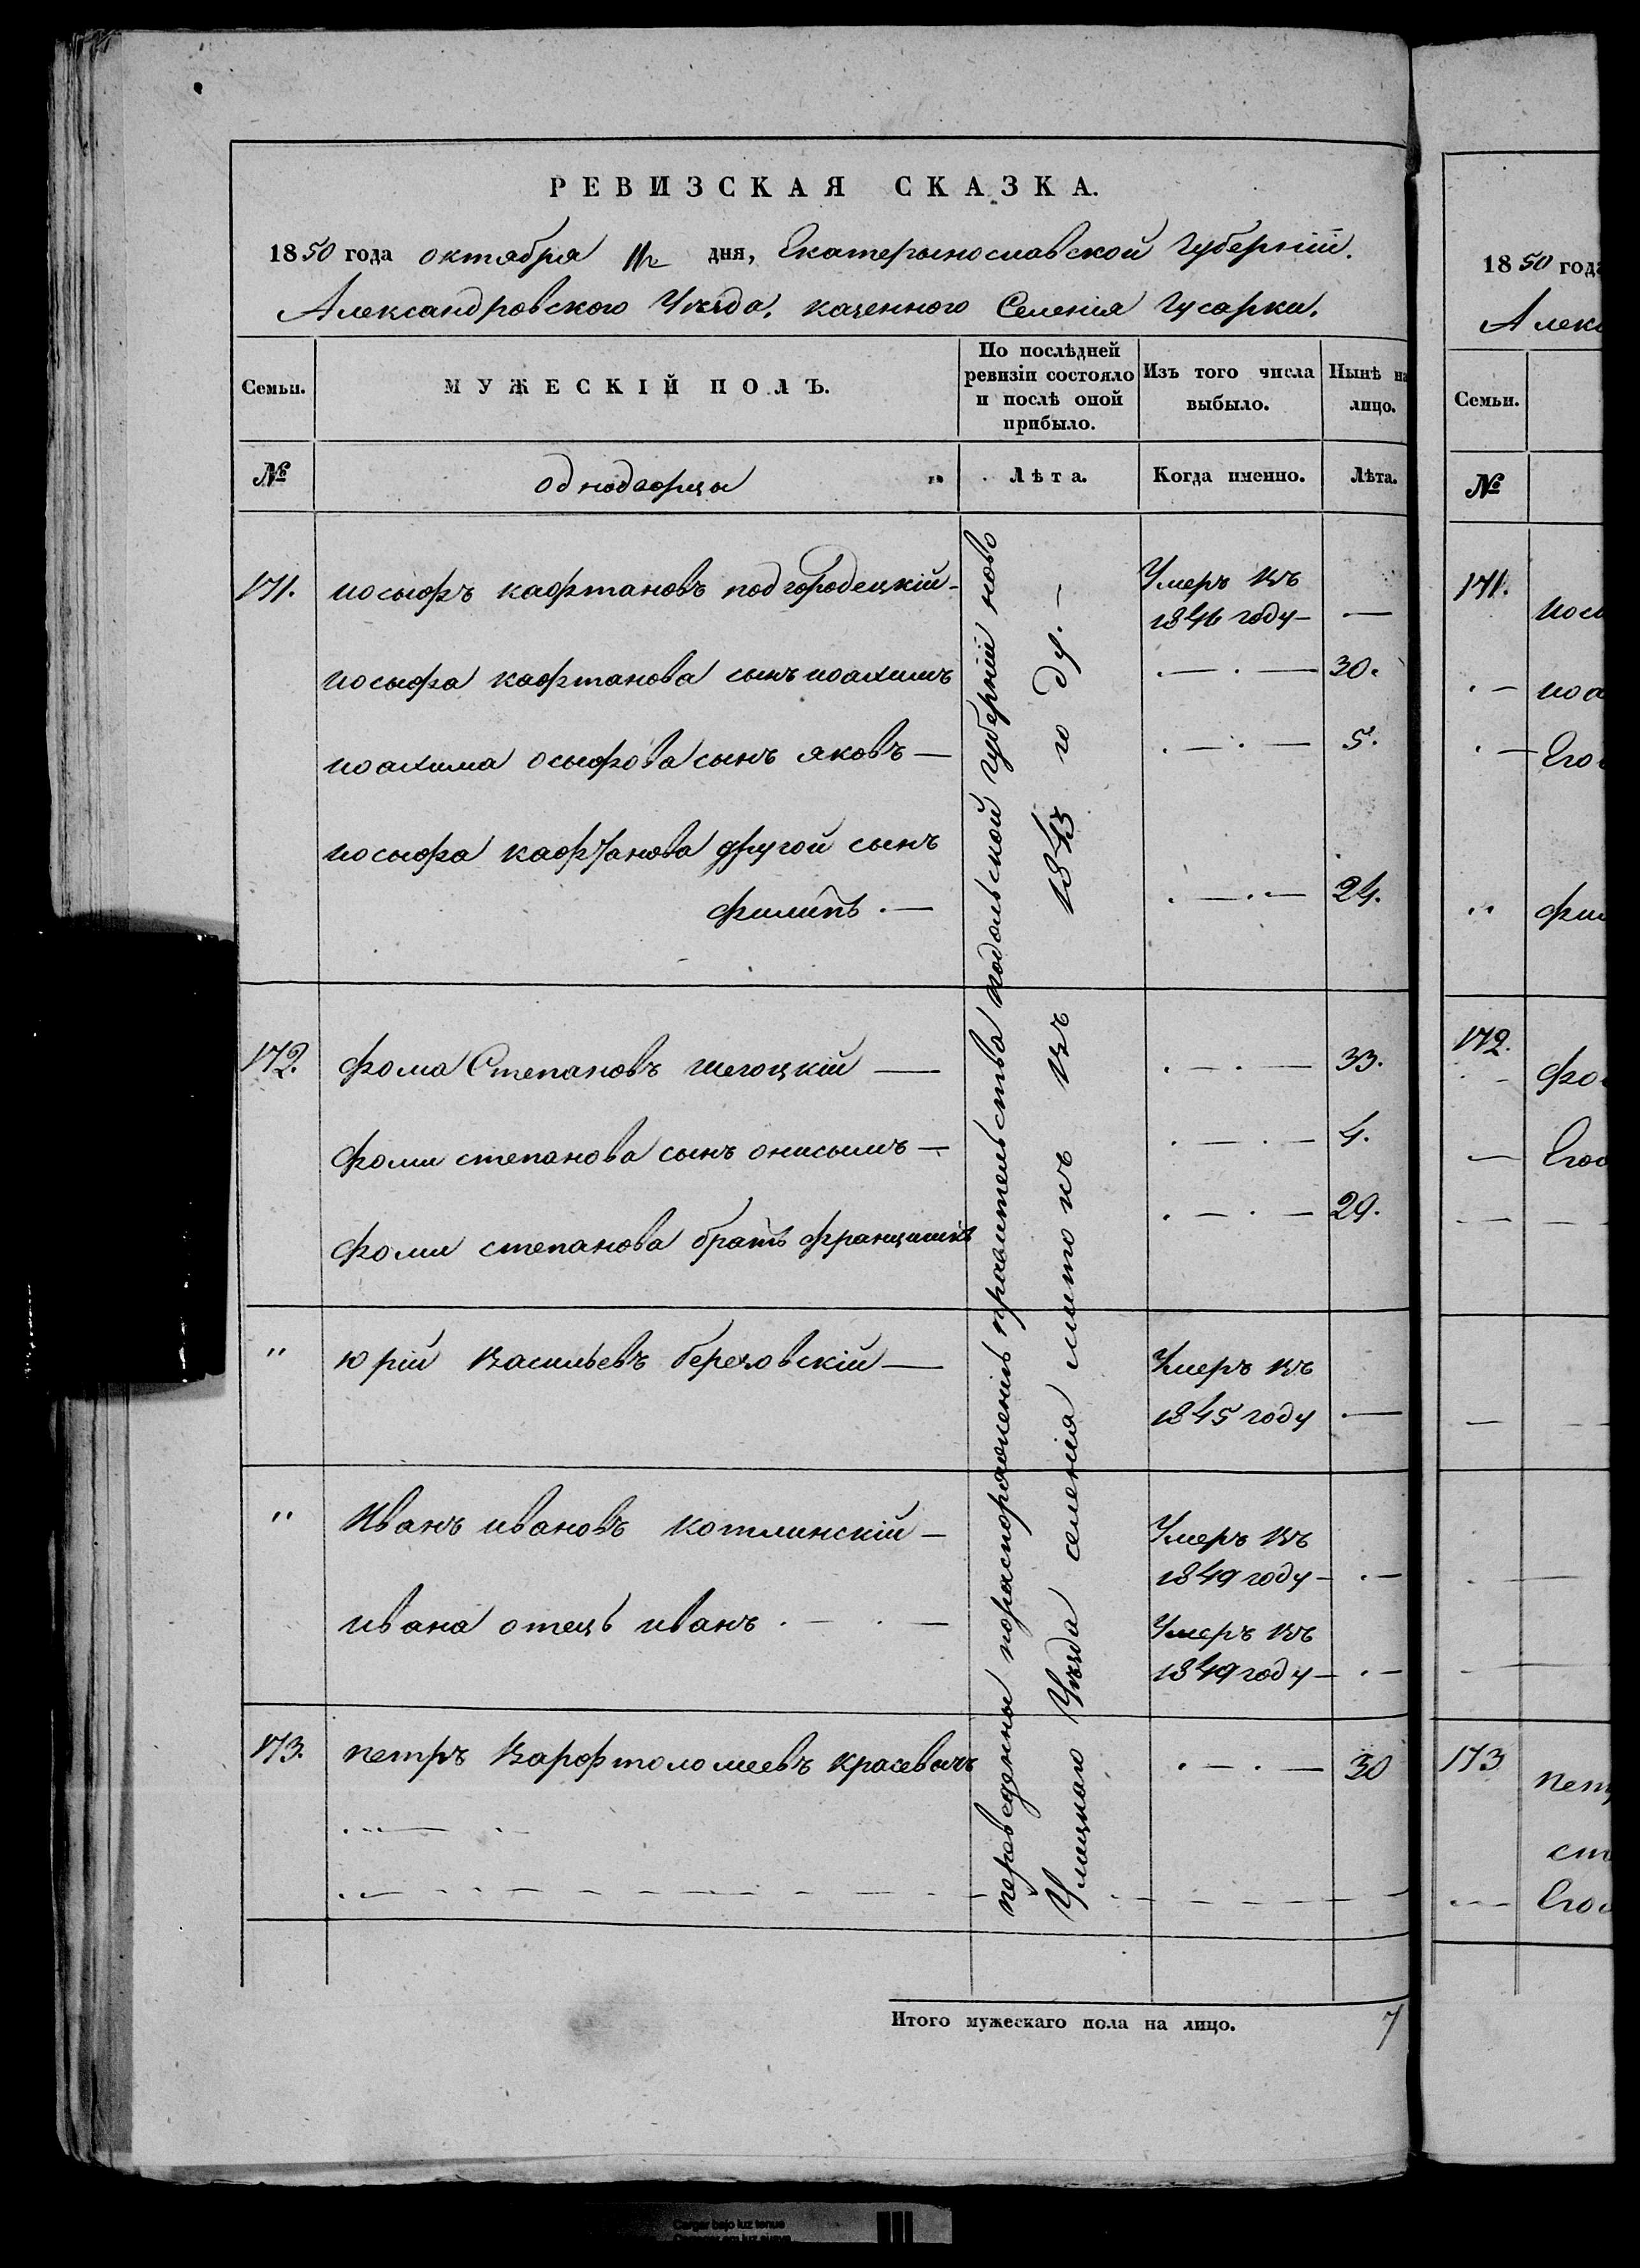 РЕВИЗСКАЯ СКАЗКА.
1850 года октября дня, Екатерынославской Губерніи.
Александровского Уѣзда. казенного Селенія Гусарки.
Семьи.
МУЖЕСКІЙ ПОЛЪ.
По послѣдней
ревизіи состояло
и послѣ оной
прибыло.
Изъ того числа
выбыло.
Нынѣ на
лицо.
№
однодворцы
Лѣта.
Когда именно.
Лѣта.
171. иосыфъ кафтановъ подгородецкій -
Умеръ въ
1846 году - —
иосыфа кафтанова сынъ иоахимъ . — . — 30.
иоахима осыфова сынъ яковъ — . — . — 5.
иосыфа кафтанова другой сынъ
филипъ . — . — . — 24.
172. фома Степановъ шегоцкій — . — . — 33.
фоми степанова сынъ онисымъ — . — . — 4.
фоми степанова братъ францишкъ . — . — 29.
" юрій Васильевъ береховскій —
Умеръ въ
1845 году . —
" Иванъ ивановъ котлинскій —
Умеръ въ
1849 году - . —
ивана отецъ иванъ . — . —
Умеръ въ
1849 году - . —
173. петръ Варфтоломеевъ красевычъ . — . — 30
переведенны пораспоряженію правительства подольской губерніи ново
Ушицкаго Уѣзда селенія въ 1843 году. —
Итого мужескаго пола на лицо. 7
1850 года
Алекс
Семьи.
№
171. иосы
. — иоа
. — Его
" фил
172. фо
— Его
173 пет
ст
Его
Cargar bajo luz tenue